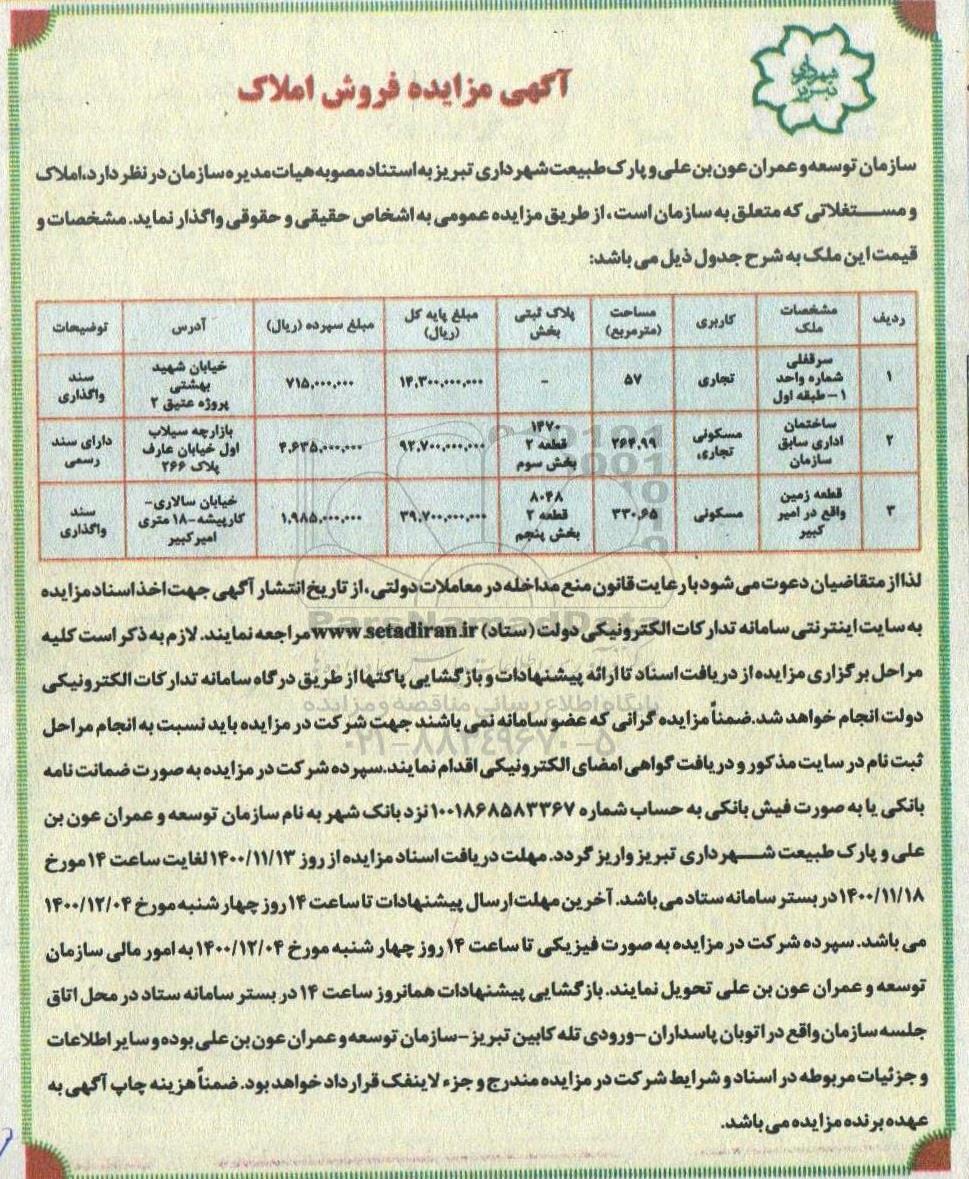 شهرداری تبریز
آگهی مزایده فروش املاک
سازمان توسعه و عمران عون بن علی و پارک طبیعت شهرداری تبریز به استناد مصوبه هیات مدیره سازمان در نظر دارد، املاک
و مستغلاتی که متعلق به سازمان است ، از طریق مزایده عمومی به اشخاص حقیقی و حقوقی واگذار نماید. مشخصات و
قیمت این ملک به شرح جدول ذیل می باشد:
ردیف | مشخصات ملک | کاربری | مساحت (مترمربع) | پلاک ثبتی بخش | مبلغ پایه کل (ریال) | مبلغ سپرده (ریال) | آدرس | توضیحات
۱ | سرقفلی شماره واحد ۱-طبقه اول | تجاری | ۵۷ | - | ۱۴,۳۰۰,۰۰۰,۰۰۰ | ۷۱۵,۰۰۰,۰۰۰ | خیابان شهید بهشتی پروژه عتیق ۲ | سند واگذاری
۲ | ساختمان اداری سابق سازمان | مسکونی تجاری | ۲۶۴,۹۹ | ۱۴۷۰ قطعه ۲ بخش سوم | ۹۲,۷۰۰,۰۰۰,۰۰۰ | ۴,۶۳۵,۰۰۰,۰۰۰ | بازارچه سیلاب اول خیابان عارف پلاک ۲۶۶ | دارای سند رسمی
۳ | قطعه زمین واقع در امیر کبیر | مسکونی | ۳۳۰,۶۵ | ۸۰۴۸ قطعه ۲ بخش پنجم | ۳۹,۷۰۰,۰۰۰,۰۰۰ | ۱,۹۸۵,۰۰۰,۰۰۰ | خیابان سالاری- کارپیشه-۱۸ متری امیرکبیر | سند واگذاری
لذا از متقاضیان دعوت می شود با رعایت قانون منع مداخله در معاملات دولتی ، از تاریخ انتشار آگهی جهت اخذ اسناد مزایده
به سایت اینترنتی سامانه تدارکات الکترونیکی دولت (ستاد) www.setadiran.ir مراجعه نمایند. لازم به ذکر است کلیه
مراحل برگزاری مزایده از دریافت اسناد تا ارائه پیشنهادات و بازگشایی پاکتها از طریق درگاه سامانه تدارکات الکترونیکی
دولت انجام خواهد شد. ضمناً مزایده گرانی که عضو سامانه نمی باشند جهت شرکت در مزایده باید نسبت به انجام مراحل
ثبت نام در سایت مذکور و دریافت گواهی امضای الکترونیکی اقدام نمایند. سپرده شرکت در مزایده به صورت ضمانت نامه
بانکی یا به صورت فیش بانکی به حساب شماره ۱۰۰۱۸۶۸۵۸۳۳۶۷ نزد بانک شهر به نام سازمان توسعه و عمران عون بن
علی و پارک طبیعت شهرداری تبریز واریز گردد. مهلت دریافت اسناد مزایده از روز ۱۴۰۰/۱۱/۱۳ لغایت ساعت ۱۴ مورخ
۱۴۰۰/۱۱/۱۸ در بستر سامانه ستاد می باشد. آخرین مهلت ارسال پیشنهادات تا ساعت ۱۴ روز چهار شنبه مورخ ۱۴۰۰/۱۲/۰۴
می باشد. سپرده شرکت در مزایده به صورت فیزیکی تا ساعت ۱۴ روز چهار شنبه مورخ ۱۴۰۰/۱۲/۰۴ به امور مالی سازمان
توسعه و عمران عون بن علی تحویل نمایند. بازگشایی پیشنهادات همانروز ساعت ۱۴ در بستر سامانه ستاد در محل اتاق
جلسه سازمان واقع در اتوبان پاسداران -ورودی تله کابین تبریز-سازمان توسعه و عمران عون بن علی بوده و سایر اطلاعات
و جزئیات مربوطه در اسناد و شرایط شرکت در مزایده مندرج و جزء لاینفک قرارداد خواهد بود. ضمناً هزینه چاپ آگهی به
عهده برنده مزایده می باشد.
ParsNamadData
پایگاه اطلاع رسانی مناقصه و مزایده
۰۲۱-۸۸۳۴۹۶۷۰-۵